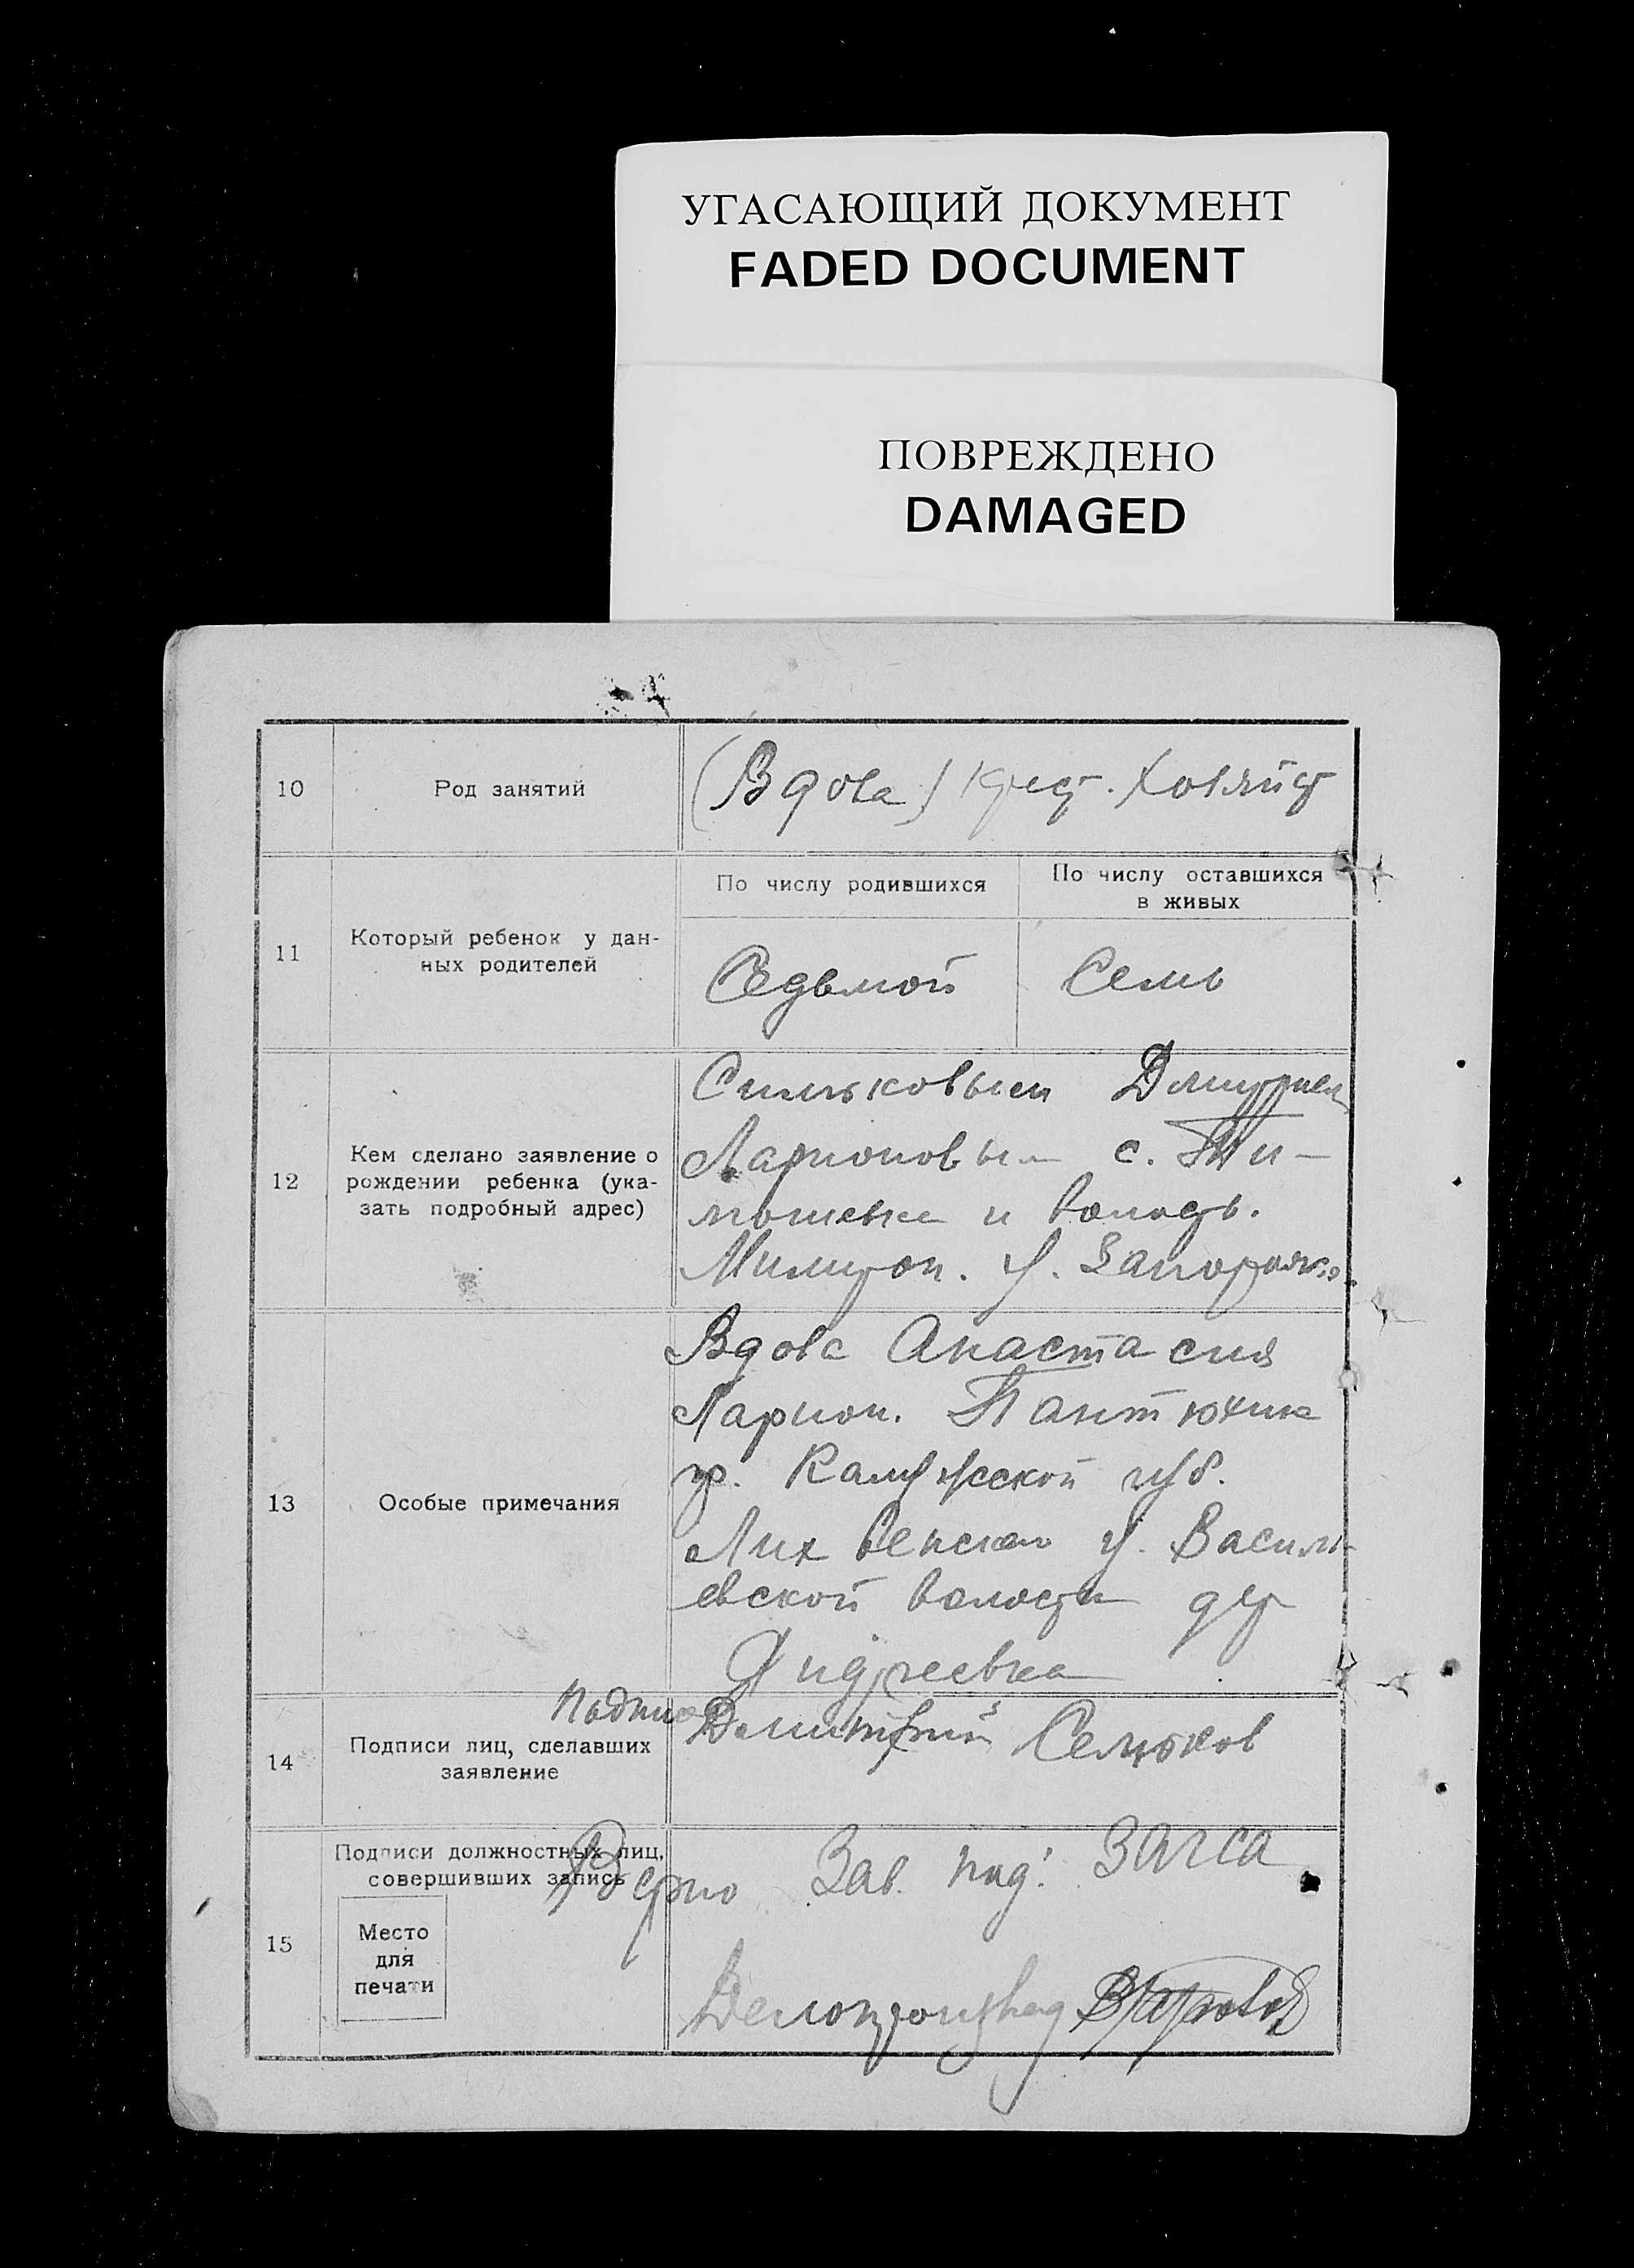 УГАСАЮЩИЙ ДОКУМЕНТ
FADED DOCUMENT
ПОВРЕЖДЕНО
DAMAGED
10
Род занятий
(Вдова) крест. хозяйст
11
Который ребенок у дан-
ных родителей
По числу родившихся
По числу оставшихся
в живых
Седьмой
Семь
12
Кем сделано заявление о
рождении ребенка (ука-
зать подробный адрес)
Сильковым Дмитрием
Ларионовым с. Ти-
мошевка и волость.
Мелитоп. у.
13
Особые примечания
Вдова Анастасия
Ларион. Пантюхина
гр. Калужской губ.
Лихвенского у. Василь-
евской волости дер
Андреевка
14
Подписи лиц, сделавших
заявление
Подпись
Дмитрий
15
Подписи должностных лиц,
совершивших запись
Место
для
печати
Верно Зав. ЗАГСА